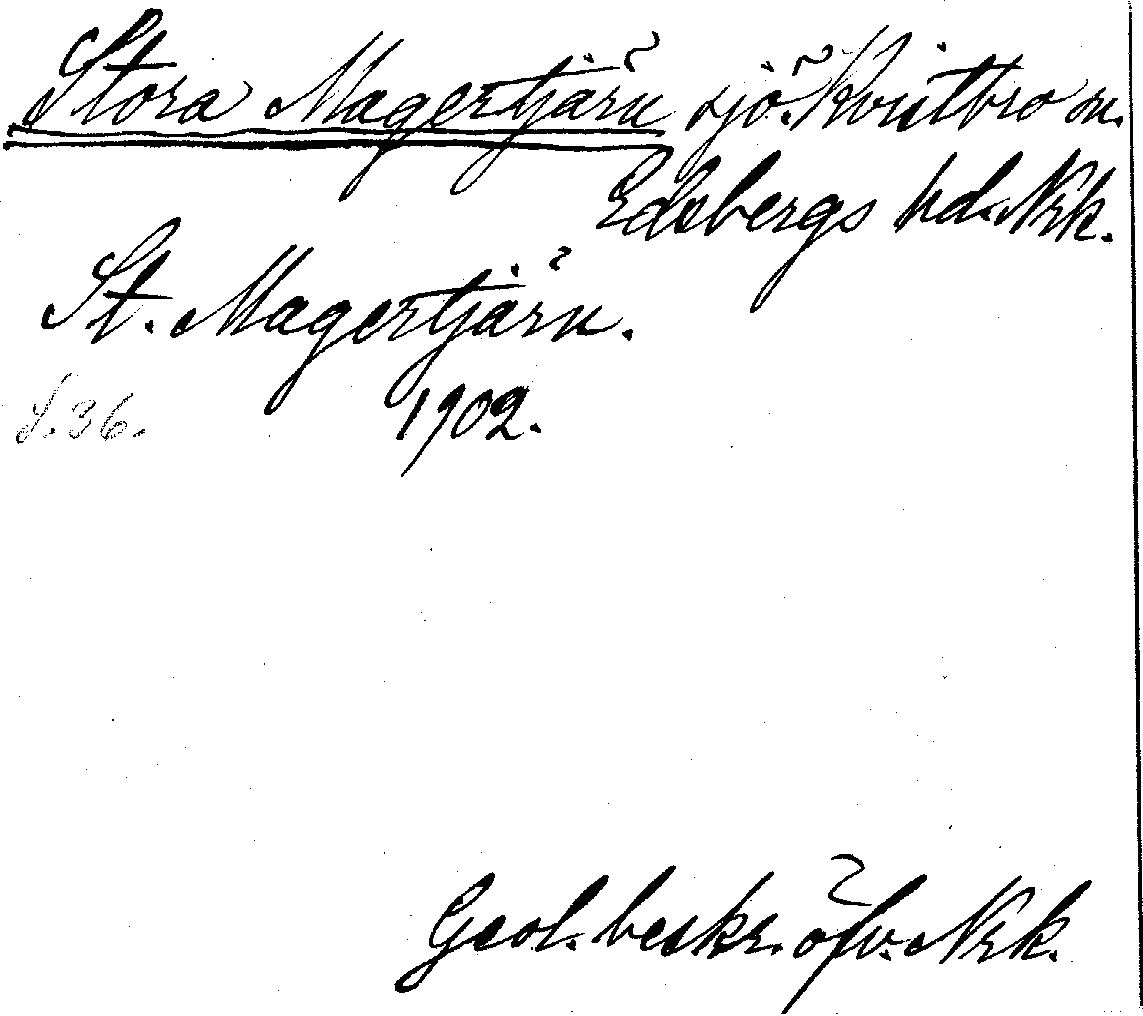 Stora Magertjärn sjö. Kvistbro sn.
Edsbergs hd. Nrk.
St. Magertjärn.
S. 36. 1902.
Geol. beskr. öfv. Nrk.